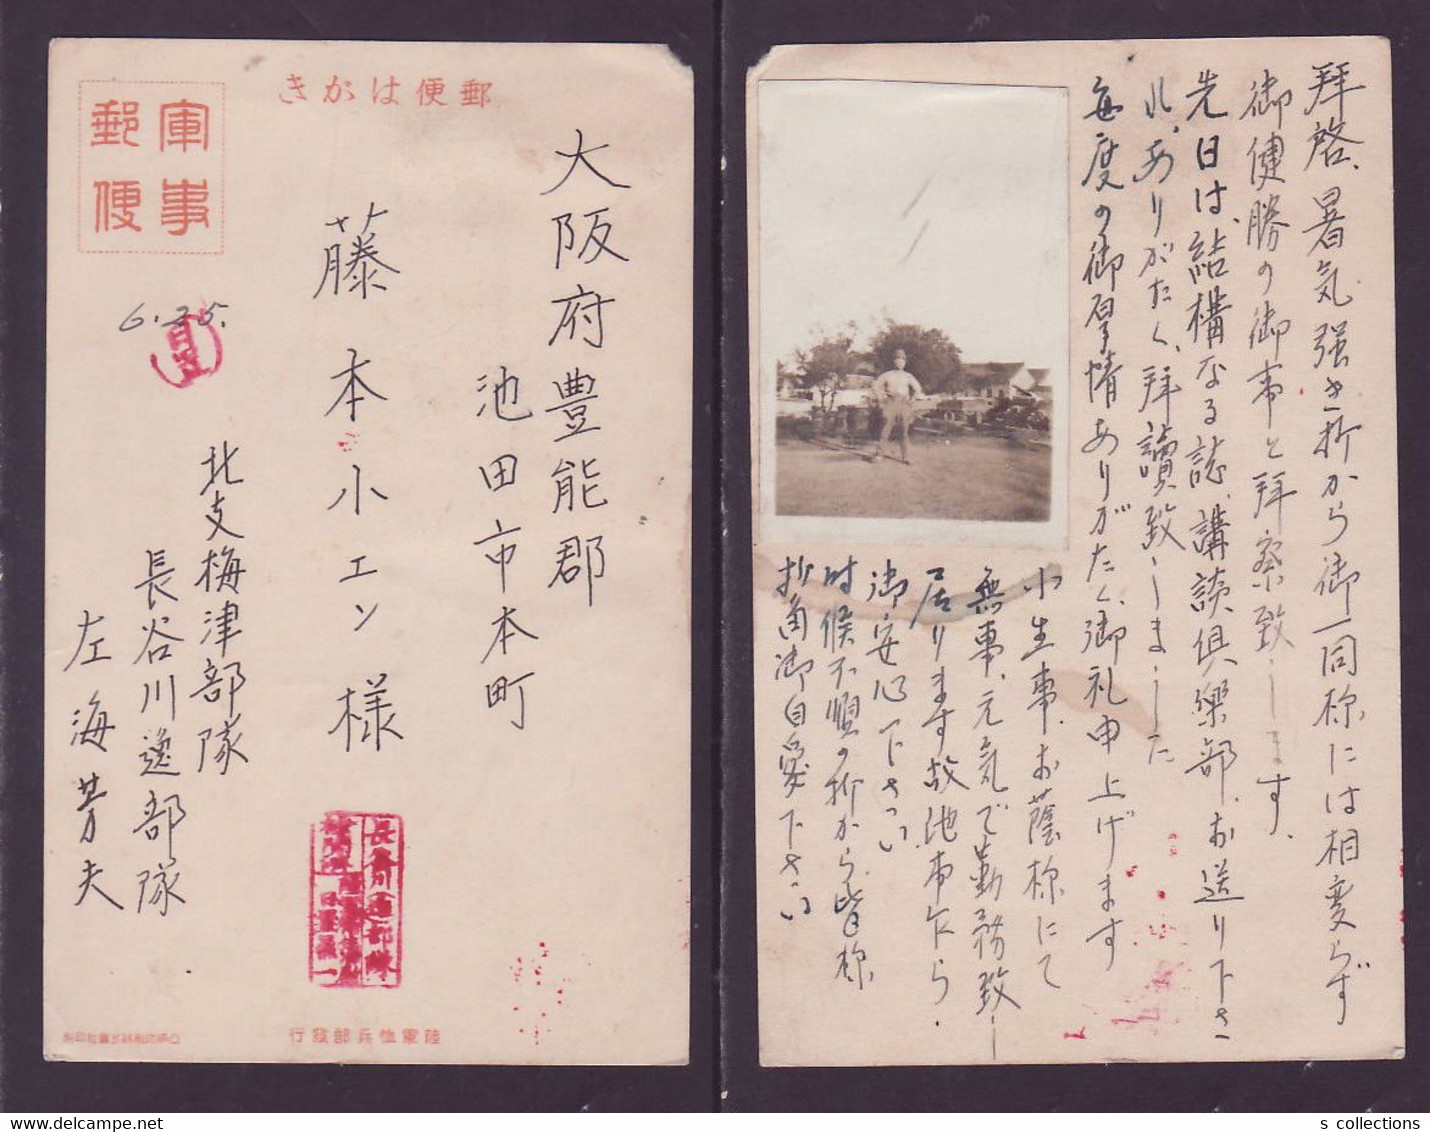 郵便はがき
軍事
郵便
大阪府豊能郡
池田市本町
藤本小エン様
6.25.
北支梅津部隊
長谷川逸部隊
左海芳夫
陸軍恤兵部發行
拝啓、暑気強き折から御一同様には相変らず
御健勝の御事と拝察致します。
先日は、結構なる誌、講談倶樂部、お送り下さ
れ、ありがたく、拝讀致しました
毎度の御厚情ありがたく、御礼申上げます
小生事、お蔭様にて
無事、元気で勤務致し
居ります故他事乍ら、
御安心下さい
時候不順の折から皆様
折角御自愛下さい
s collections